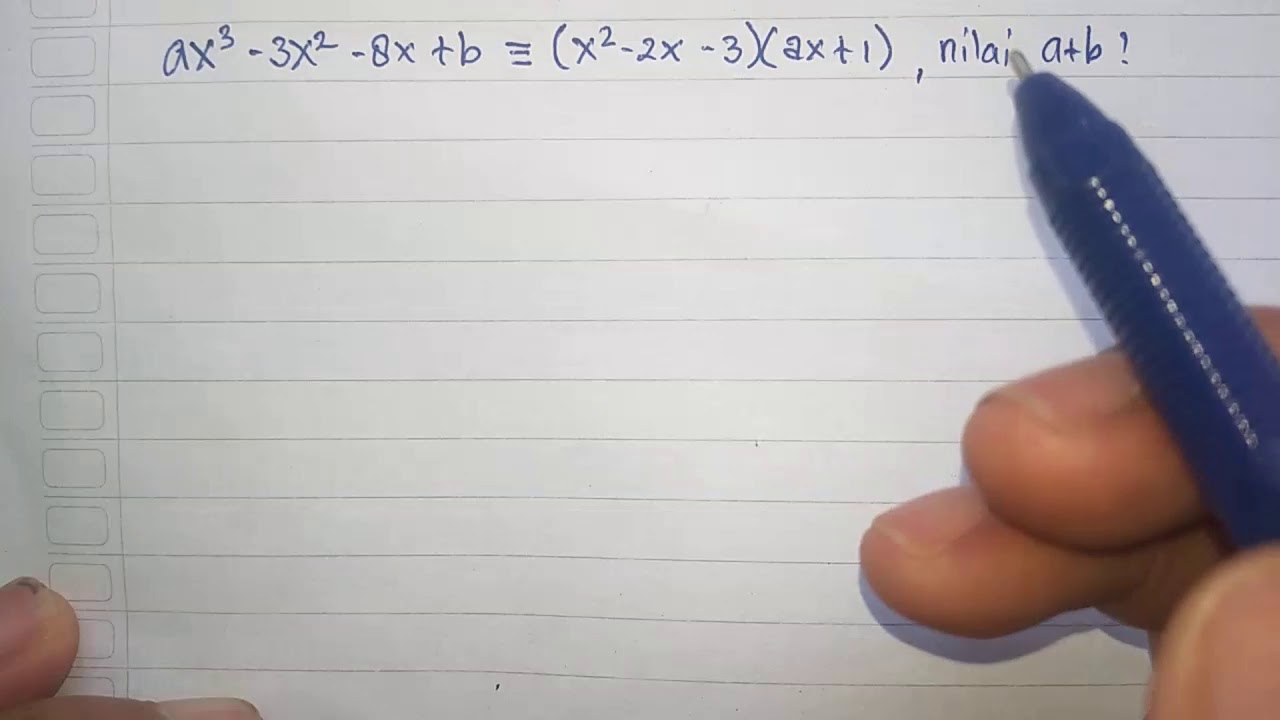 ax³ -3x² -8x +b ≡ (x² -2x -3)(ax+1) , nilai a+b ?